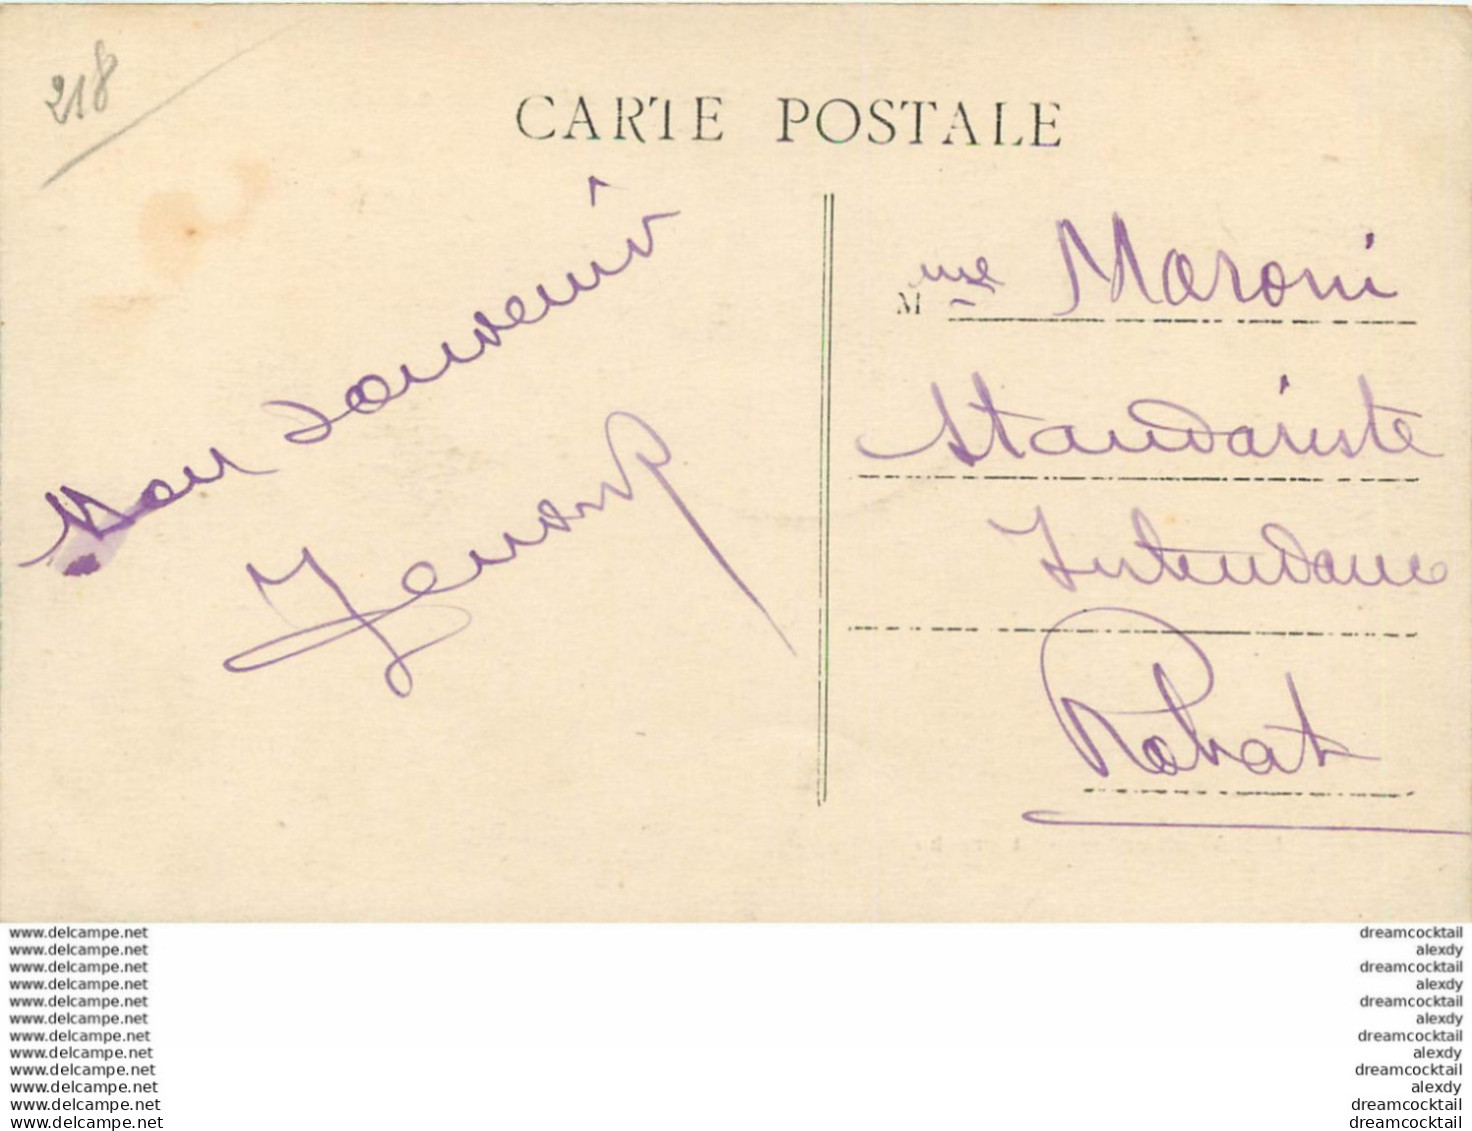 218
CARTE POSTALE
Mon souvenir
Mme Maroni
Standariste
Intendance
Rabat
www.delcampe.net
www.delcampe.net
www.delcampe.net
www.delcampe.net
www.delcampe.net
www.delcampe.net
www.delcampe.net
www.delcampe.net
www.delcampe.net
www.delcampe.net
www.delcampe.net
www.delcampe.net
dreamcocktail
alexdy
dreamcocktail
alexdy
dreamcocktail
alexdy
dreamcocktail
alexdy
dreamcocktail
alexdy
dreamcocktail
dreamcocktail